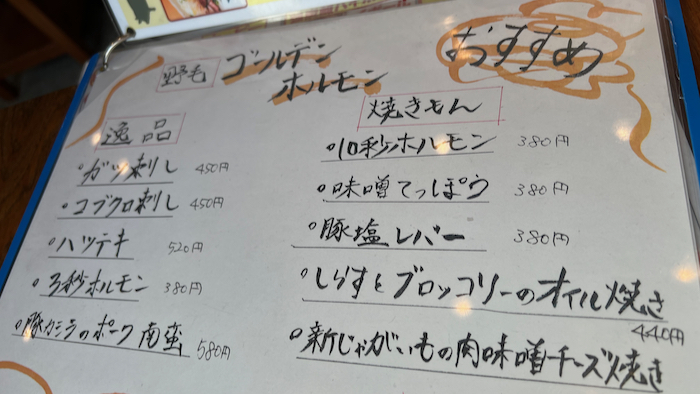 野毛 ゴールデン
ホルモン
おすすめ
逸品
ガツ刺し 450円
コブクロ刺し 450円
ハツテキ 520円
3秒ホルモン 380円
豚カシラのポーク南蛮 580円
焼きもん
10秒ホルモン 380円
味噌てっぽう 380円
豚塩レバー 380円
しらすとブロッコリーのオイル焼き
440円
新じゃがいもの肉味噌チーズ焼き